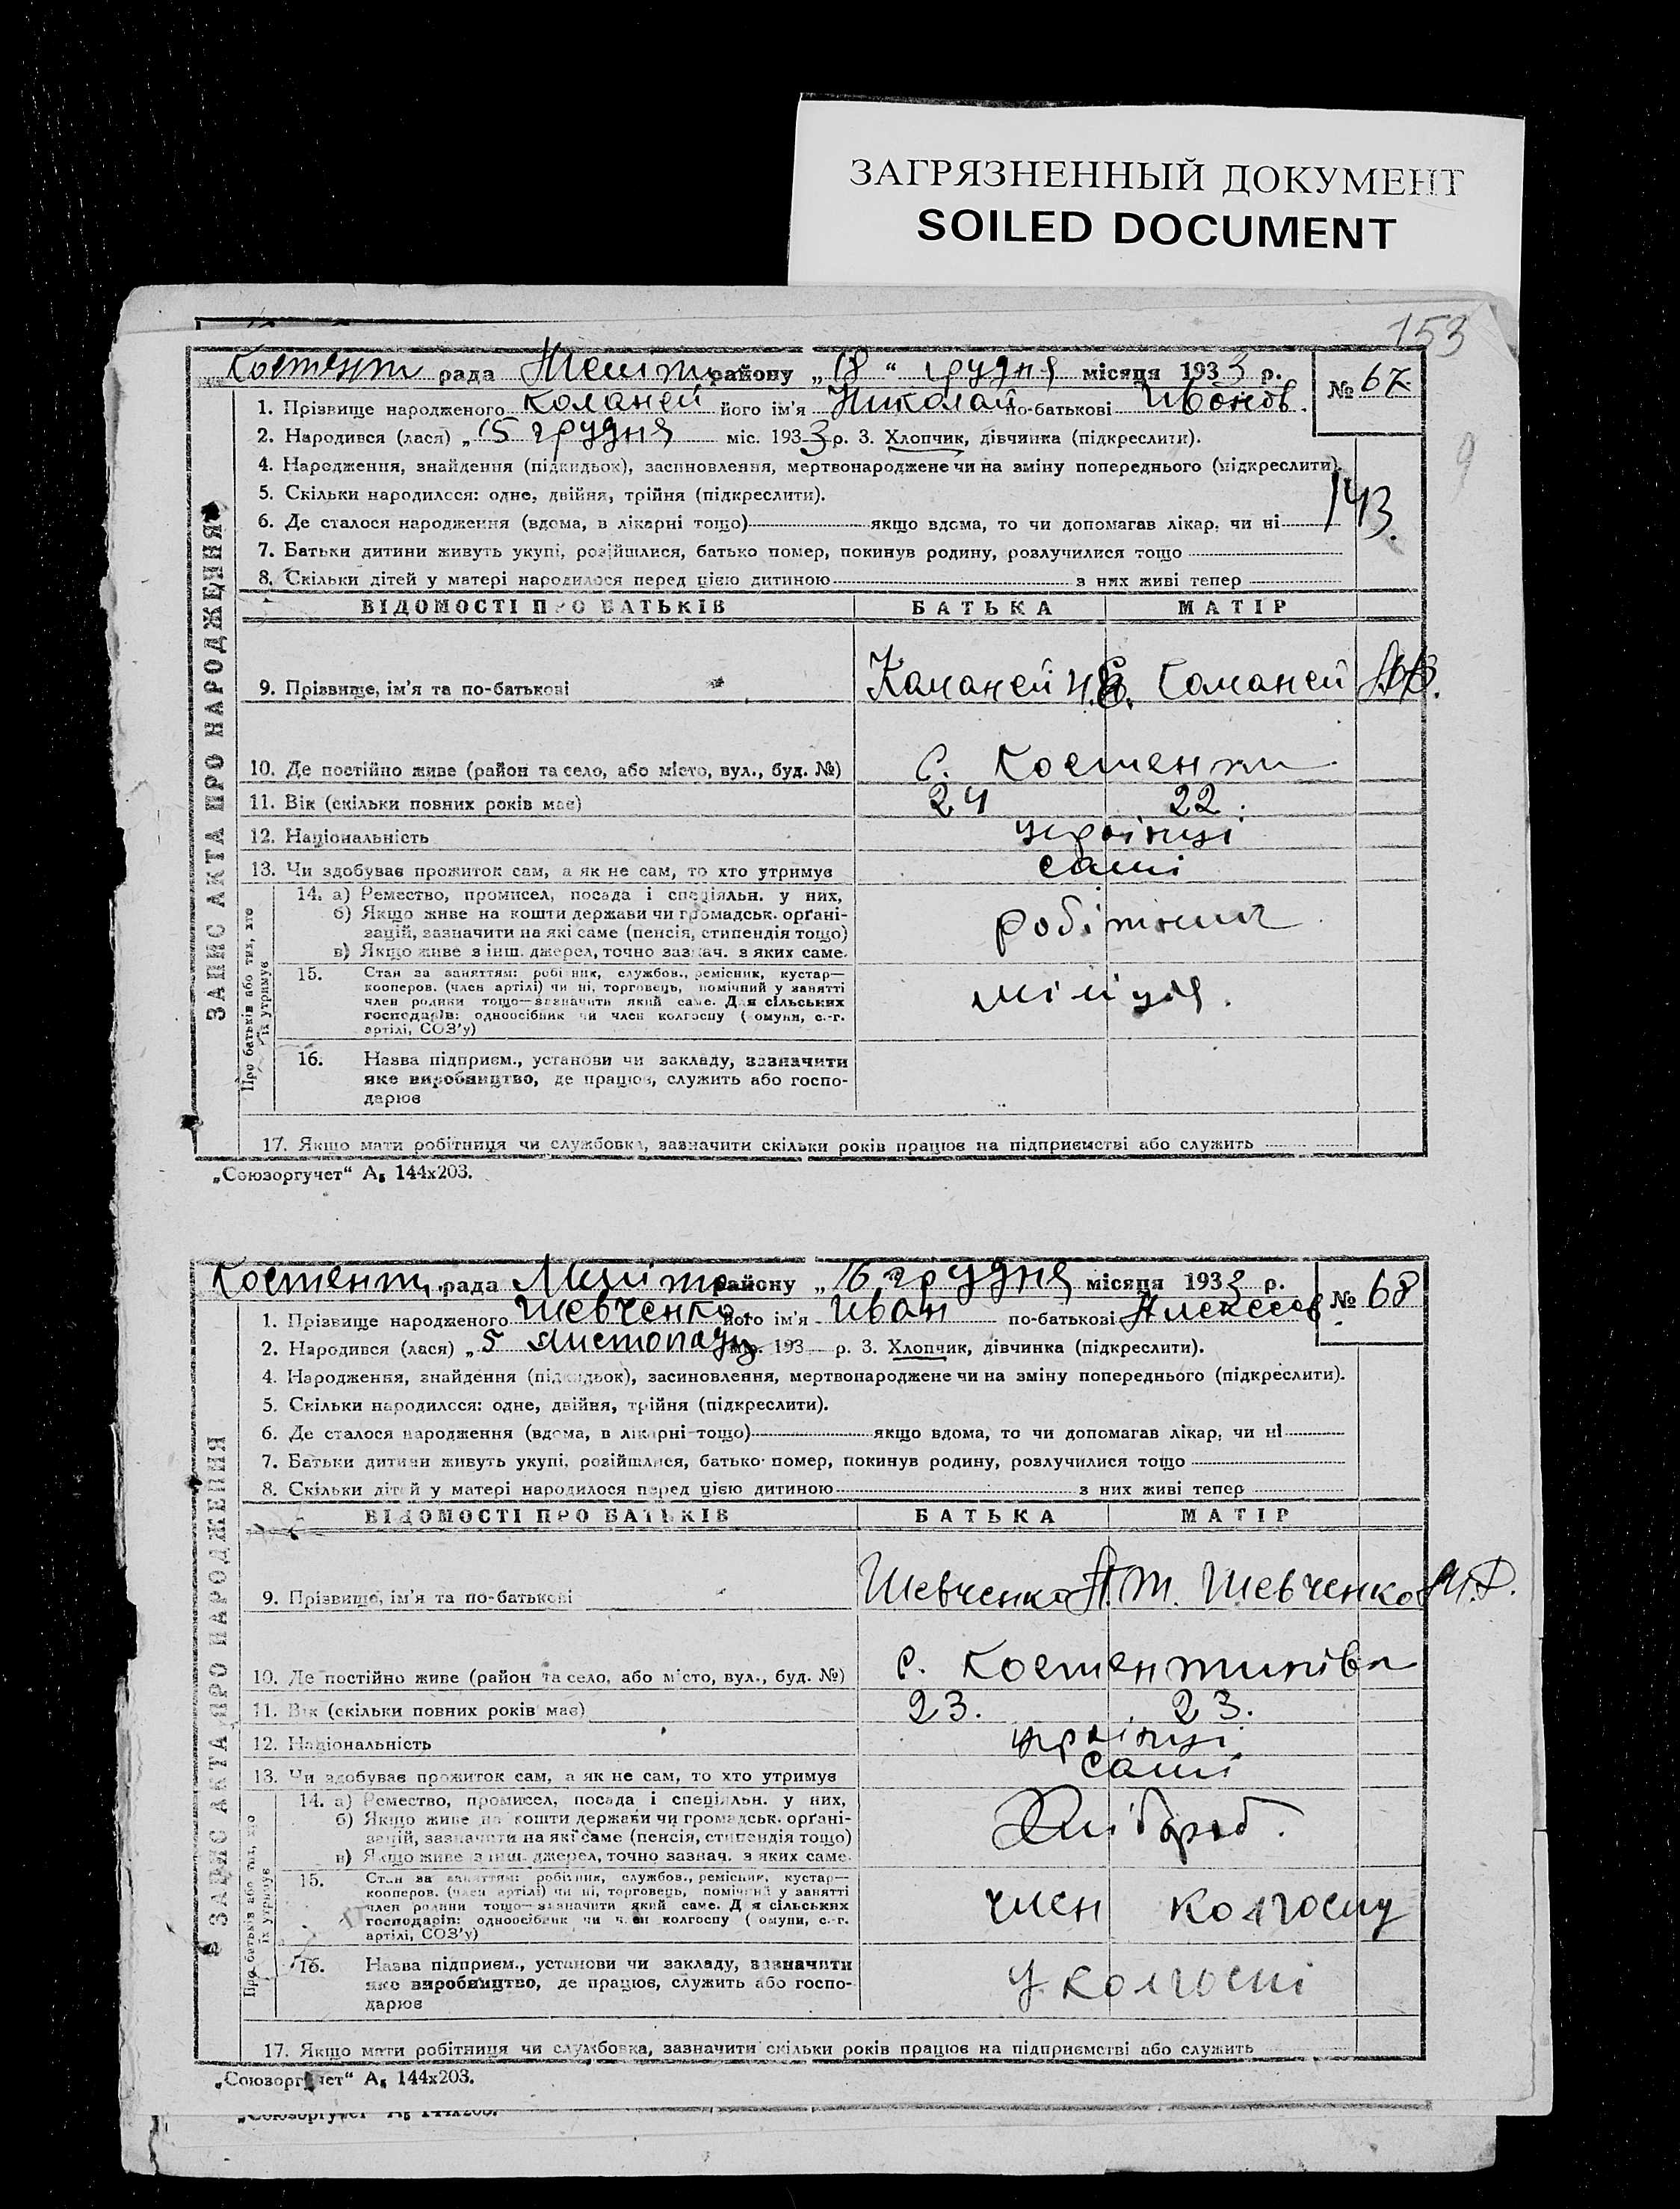 ЗАГРЯЗНЕННЫЙ ДОКУМЕНТ
SOILED DOCUMENT
153
Костент рада Меліт району „18“ грудня місяця 1933 р. № 67
1. Прізвище народженого Коланей його ім'я Николай по-батькові Иванов.
2. Народився (лася) „15 грудня міс. 1933 р. 3. Хлопчик, дівчинка (підкреслити).
4. Народження, знайдення (підкидьок), засиновлення, мертвонароджене чи на зміну попереднього (підкреслити).
9
5. Скільки народилося: одне, двійня, трійня (підкреслити).
143.
6. Де сталося народження (вдома, в лікарні тощо) якщо вдома, то чи допомагав лікар, чи ні
7. Батьки дитини живуть укупі, розійшлися, батько помер, покинув родину, розлучилися тощо
8. Скільки дітей у матері народилося перед цією дитиною з них живі тепер
ВІДОМОСТІ ПРО БАТЬКІВ БАТЬКА МАТІР
9. Прізвище, ім'я та по-батькові
10. Де постійно живе (район та село, або місто, вул., буд. №) с. Костент
11. Вік (скільки повних років має) 24 22.
12. Національність українці
13. Чи здобуває прожиток сам, а як не сам, то хто утримує самі
14. а) Ремество, промисел, посада і спеціяльн. у них,
б) Якщо живе на кошти держави чи громадськ. орґані-
зацій, зазначити на які саме (пенсія, стипендія тощо) робітник
в) Якщо живе з інш. джерел, точно зазнач. з яких саме.
15. Стан за заняттям: робітник, службов., ремісник, кустар—
кооперов. (член артілі) чи ні, торговець, помічний у занятті
член родини тощо—зазначити який саме. Для сільських міліція.
господарів: одноосібник чи член колгоспу (комуни, с.-г.
артілі, СОЗ'у)
16. Назва підприєм., установи чи закладу, зазначити
яке виробництво, де працює, служить або госпо-
дарює
17. Якщо мати робітниця чи службовка, зазначити скільки років працює на підприємстві або служить
ЗАПИС АКТА ПРО НАРОДЖЕННЯ
Про батьків або тих, хто
їх утримує
„Союзоргучет“ А₅ 144х203.
Костент. рада Меліто району „16 грудня місяця 1933 р. № 68
1. Прізвище народженого Шевченко його ім'я Иван по-батькові Алексеев.
2. Народився (лася) „5 листопаду міс. 193 р. 3. Хлопчик, дівчинка (підкреслити).
4. Народження, знайдення (підкидьок), засиновлення, мертвонароджене чи на зміну попереднього (підкреслити).
5. Скільки народилося: одне, двійня, трійня (підкреслити).
6. Де сталося народження (вдома, в лікарні тощо) якщо вдома, то чи допомагав лікар, чи ні
7. Батьки дитини живуть укупі, розійшлися, батько помер, покинув родину, розлучилися тощо
8. Скільки дітей у матері народилося перед цією дитиною з них живі тепер
ВІДОМОСТІ ПРО БАТЬКІВ БАТЬКА МАТІР
9. Прізвище, ім'я та по-батькові Шевченко А.Т. Шевченко М.Д.
10. Де постійно живе (район та село, або місто, вул., буд. №) с. Костентинівка
11. Вік (скільки повних років має) 23. 23.
12. Національність українці
13. Чи здобуває прожиток сам, а як не сам, то хто утримує самі
14. а) Ремество, промисел, посада і спеціяльн. у них,
б) Якщо живе на кошти держави чи громадськ. орґані- Хлібороб.
зацій, зазначити на які саме (пенсія, стипендія тощо)
в) Якщо живе з інш. джерел, точно зазнач. з яких саме.
15. Стан за заняттям: робітник, службов., ремісник, кустар—
кооперов. (член артілі) чи ні, торговець, помічний у занятті
член родини тощо—зазначити який саме. Для сільських член колгоспу
господарів: одноосібник чи член колгоспу (комуни, с.-г.
артілі, СОЗ'у)
16. Назва підприєм., установи чи закладу, зазначити
яке виробництво, де працює, служить або госпо- у колгоспі
дарює
17. Якщо мати робітниця чи службовка, зазначити скільки років працює на підприємстві або служить
ЗАПИС АКТА ПРО НАРОДЖЕННЯ
Про батьків або тих, хто
їх утримує
„Союзоргучет“ А₅ 144х203.
„Союзоргучет“ А₅ 144х203.